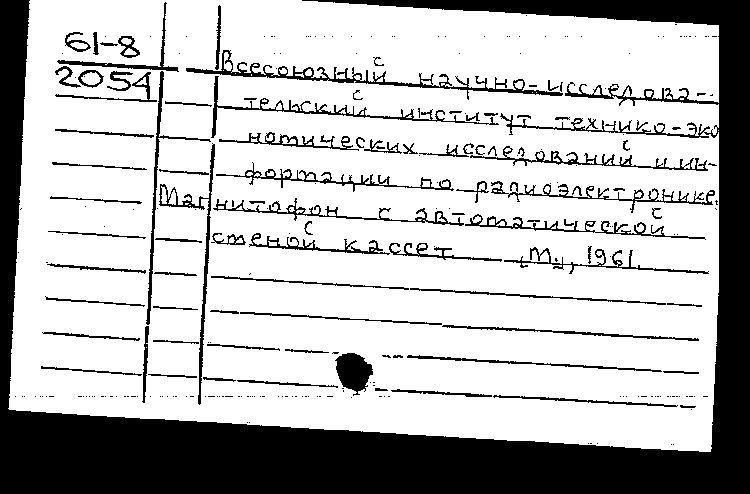 61-8
2054
Всесоюзный научно-исследова-
тельский институт технико-эко
номических исследований и ин-
формации по радиоэлектронике.
Магнитофон с автоматической
сменой кассет. М., 1961.